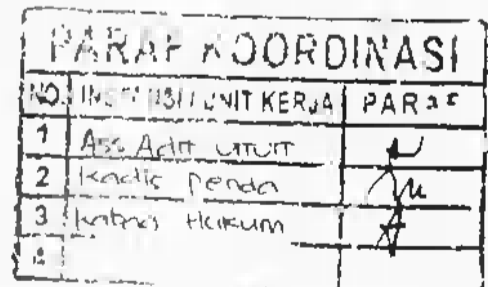 PARAF KOORDINASI
NO. INSTANSI / UNIT KERJA PARAF
1 Ass Adm umum
2 Kadis Penda
3 Kabag Hukum